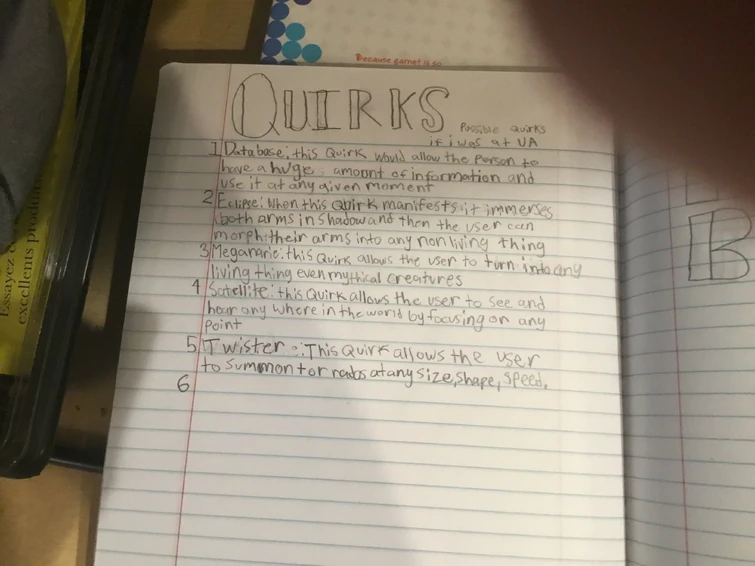 Because garnet is so
QUIRKS
Possible quirks
if i was at UA
1 Database: this Quirk would allow the person to
have a huge amount of information and
use it at any given moment
2 Eclipse: When this Quirk manifests it immerses
both arms in shadow and then the user can
morph their arms into any non living thing
3 : this Quirk allows the user to turn into any
living thing even mythical creatures
4 Satellite: this Quirk allows the user to see and
hear any where in the world by focusing on any
point
5 Twister: This Quirk allows the user
to summon tornados at any size, shape, speed,
6
Essayez
excellents produits